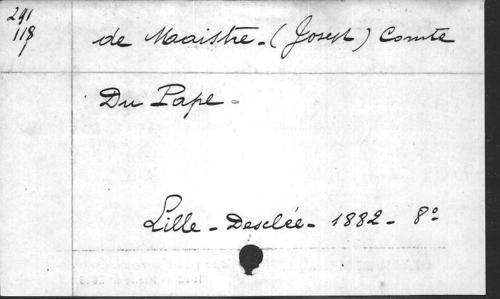 291
118
1
de Maistre - (Joseph) Comte
Du Pape -
Lille - Desclée - 1882 - 8°